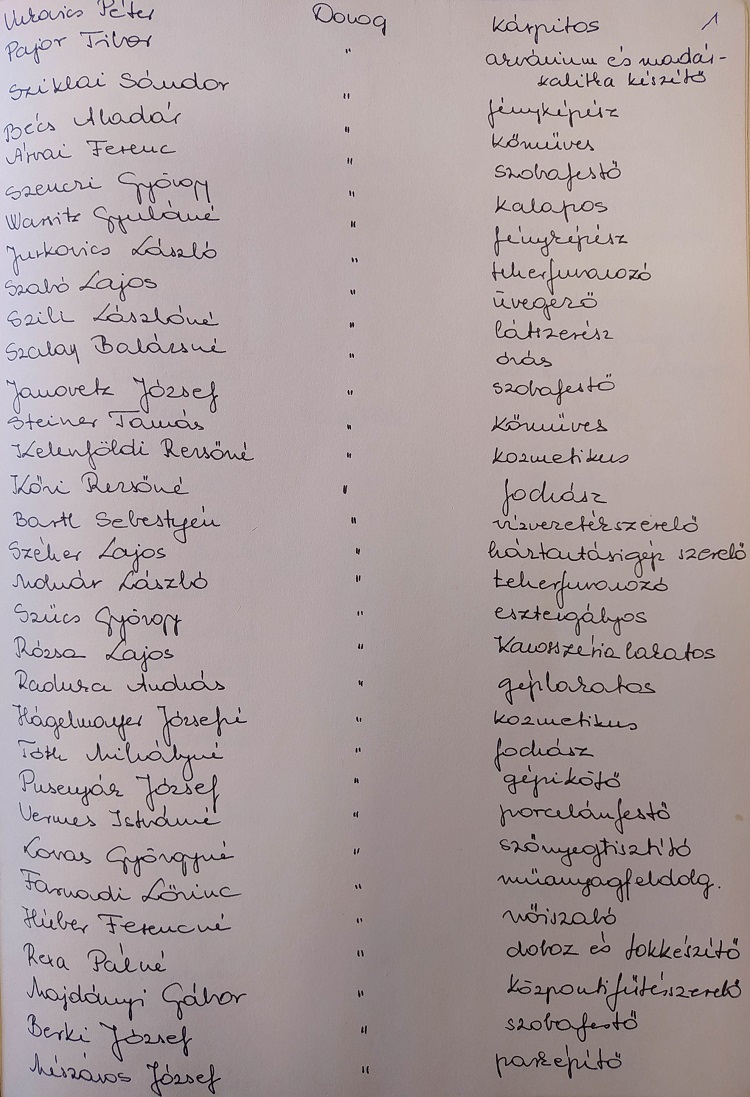 Vukovics Péter Dorog kárpitos 1
Pajor Tibor " akvárium és madár-
kalitka készítő
Sziklai Sándor " fényképész
Bécs Aladár " kőműves
Árvai Ferenc " szobafestő
Szenczi György " kalapos
Warnitz Gyuláné " fényképész
Jurkovics László " teherfuvarozó
Szabó Lajos " üvegező
Szili Lászlóné " látszerész
Szalay Balázsné " órás
Janovetz József " szobafestő
Steiner Tamás " kőműves
Kelenföldi Rezsőné " kozmetikus
Kőri Rezsőné " fodrász
Bartl Sebestyén " vízvezetékszerelő
Széher Lajos " háztartásigép szerelő
Molnár László " teherfuvarozó
Szűcs György " esztergályos
Rózsa Lajos " Karosszéria lakatos
Radura András " géplakatos
Hágelmayer Józsefné " kozmetikus
Tóth Mihályné " fodrász
Pusenyák József " gépikötő
Vermes Istvánné " porcelánfestő
Kovas Györgyné " szőnyegtisztító
Farnadi Lőrinc " műanyagfeldolg.
Hieber Ferencné " nőiszabó
Rexa Pálné " doboz és tokkészítő
Majdányi Gábor " központifűtésszerelő
Berki József " szobafestő
Mészáros József " parképítő